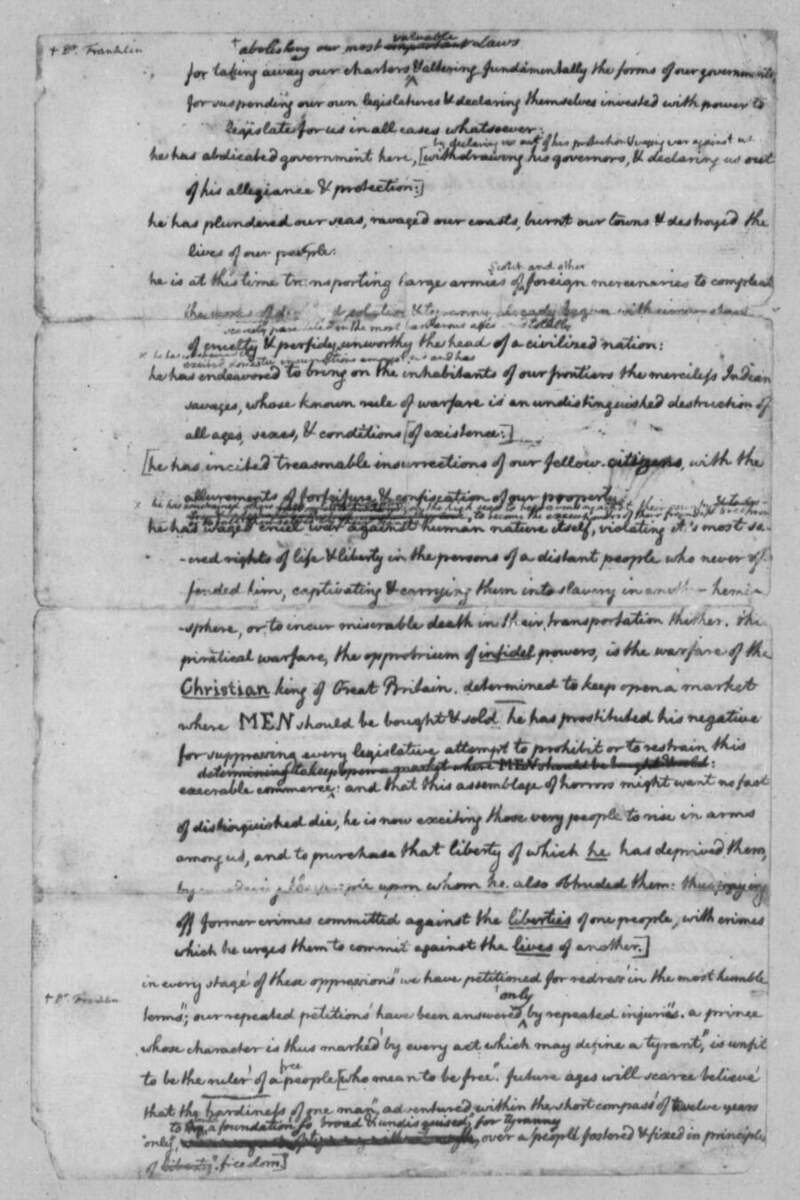 + Dr. Franklin
+ abolishing our most important valuable laws
for taking away our charters & altering fundamentally the forms of our governments,
for suspending our own legislatures & declaring themselves invested with power to
legislate for us in all cases whatsoever:
by declaring us out of his protection & waging war against us
he has abdicated government here, [withdrawing his governors, & declaring us out
of his allegiance & protection:]
he has plundered our seas, ravaged our coasts, burnt our towns & destroyed the
lives of our people:
Scotch and other
he is at this time transporting large armies of foreign mercenaries to compleat
the works of desolation & tyranny already begun with circumstances
scarcely paralleled in the most barbarous ages totally
of cruelty & perfidy unworthy the head of a civilized nation:
x he has
excited domestic insurrections amongst us and has
he has endeavored to bring on the inhabitants of our frontiers the merciless Indian
savages, whose known rule of warfare is an undistinguished destruction of
all ages, sexes, & conditions [of existence:]
[he has incited treasonable insurrections of our fellow-citizens, with the
allurements of forfeiture & confiscation of our property:
x he has
he has waged cruel war against human nature itself, violating it's most sa-
-cred rights of life & liberty in the persons of a distant people who never of-
fended him, captivating & carrying them into slavery in another hemi-
-sphere, or to incur miserable death in their transportation thither. this
piratical warfare, the opprobrium of infidel powers, is the warfare of the
Christian king of Great Britain. determined to keep open a market
where MEN should be bought & sold he has prostituted his negative
for suppressing every legislative attempt to prohibit or to restrain this
determining to keep open a market where MEN should be bought & sold:
execrable commerce: and that this assemblage of horrors might want no fact
of distinguished die, he is now exciting those very people to rise in arms
among us, and to purchase that liberty of which he has deprived them,
by murdering the people upon whom he also obtruded them: thus paying
off former crimes committed against the liberties of one people, with crimes
which he urges them to commit against the lives of another.]
in every stage of these oppressions we have petitioned for redress in the most humble
+ Dr. Franklin
+ only
terms; our repeated petitions have been answered by repeated injuries. a prince
whose character is thus marked by every act which may define a tyrant, is unfit
free
to be the ruler of a people [who mean to be free. future ages will scarce believe
that the hardiness of one man, adventured within the short compass of twelve years
to a foundation so broad & undisguised, for tyranny
only, over a people fostered & fixed in principles
of liberty. freedom]